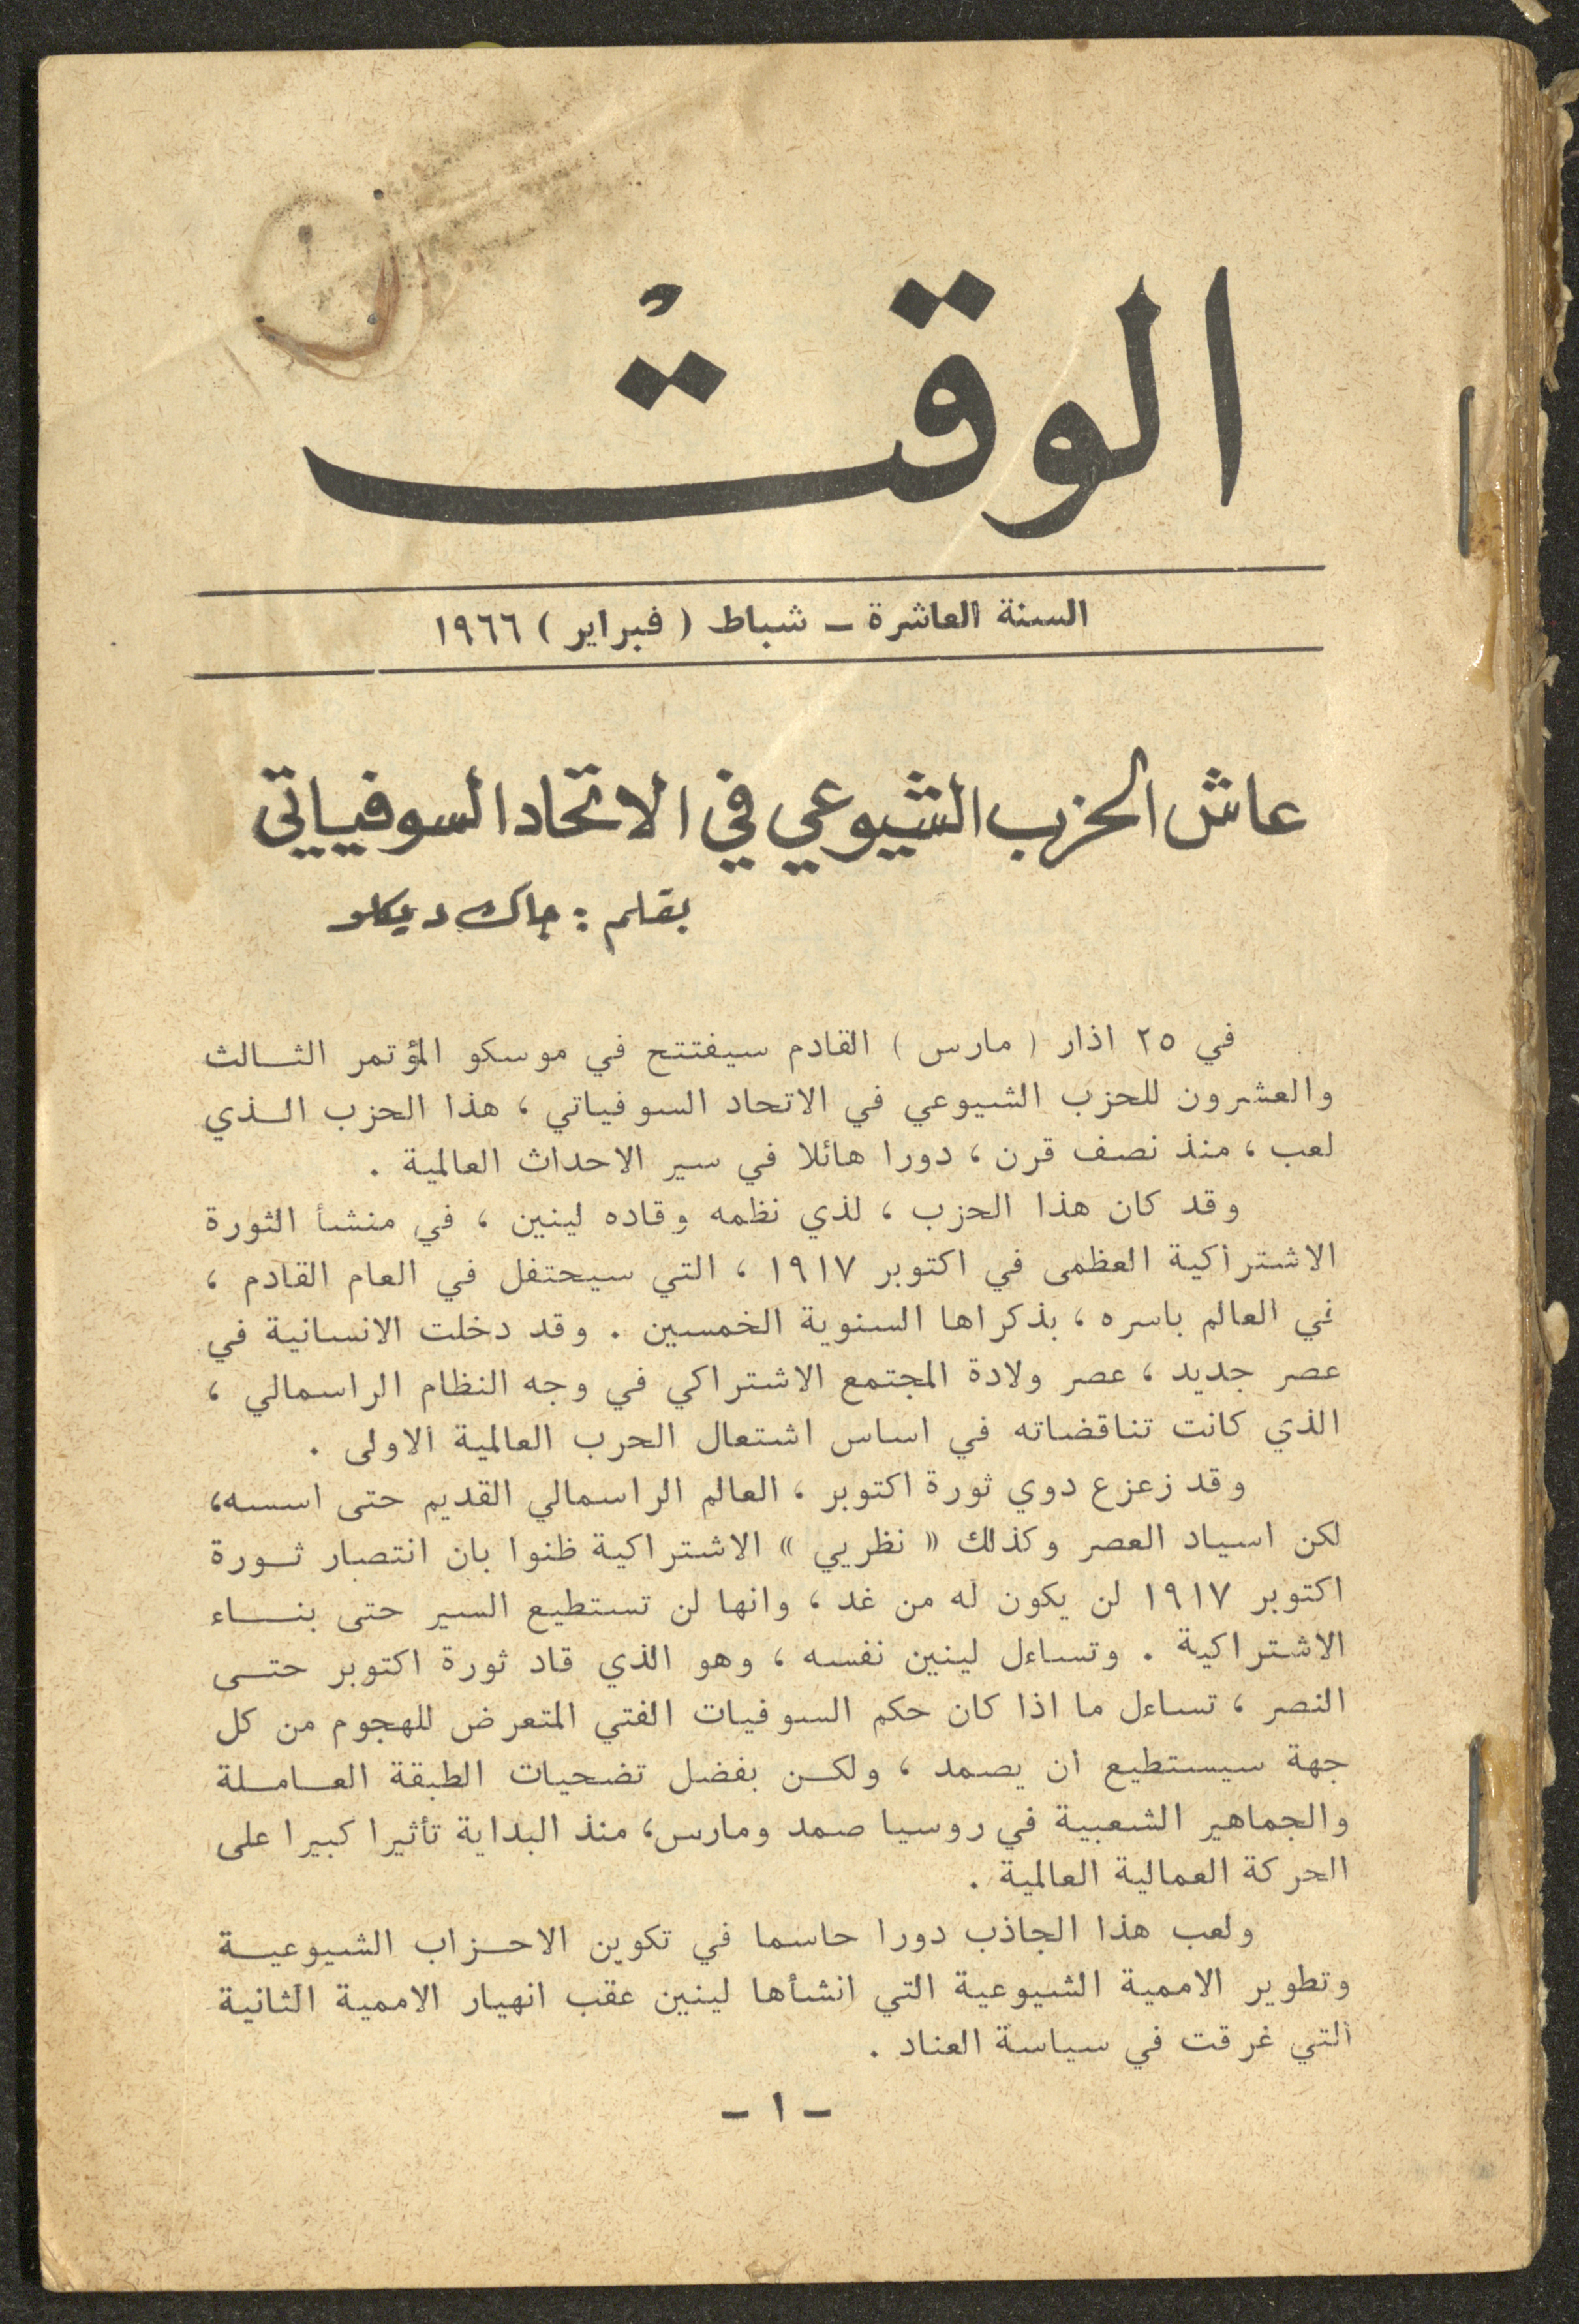 الوقتْ
السنة العاشرة – شباط ( فبراير ) ١٩٦٦
عاش الحزب الشيوعي في الاتحاد السوفياتي
بقلم : جاك ديكلو
في ٢٥ اذار ( مارس ) القادم سيفتتح في موسكو المؤتمر الثالث
والعشرون للحزب الشيوعي في الاتحاد السوفياتي ، هذا الحزب الذي
لعب ، منذ نصف قرن ، دورا هائلا في سير الاحداث العالمية .
وقد كان هذا الحزب ، لذي نظمه وقاده لينين ، في منشأ الثورة
الاشتراكية العظمى في اكتوبر ١٩١٧ ، التي سيحتفل في العام القادم ،
في العالم باسره ، بذكراها السنوية الخمسين . وقد دخلت الانسانية في
عصر جديد ، عصر ولادة المجتمع الاشتراكي في وجه النظام الراسمالي ،
الذي كانت تناقضاته في اساس اشتعال الحرب العالمية الاولى .
وقد زعزع دوي ثورة اكتوبر ، العالم الراسمالي القديم حتى اسسه،
لكن اسياد العصر وكذلك « نظريي » الاشتراكية ظنوا بان انتصار ثورة
اكتوبر ١٩١٧ لن يكون له من غد ، وانها لن تستطيع السير حتى بناء
الاشتراكية . وتساءل لينين نفسه ، وهو الذي قاد ثورة اكتوبر حتى
النصر ، تساءل ما اذا كان حكم السوفيات الفتي المتعرض للهجوم من كل
جهة سيستطيع ان يصمد ، ولكن بفضل تضحيات الطبقة العاملة
والجماهير الشعبية في روسيا صمد ومارس، منذ البداية تأثيرا كبيرا على
الحركة العمالية العالمية .
ولعب هذا الجاذب دورا حاسما في تكوين الاحزاب الشيوعية
وتطوير الاممية الشيوعية التي انشأها لينين عقب انهيار الاممية الثانية
التي غرقت في سياسة العناد .
– ١ –